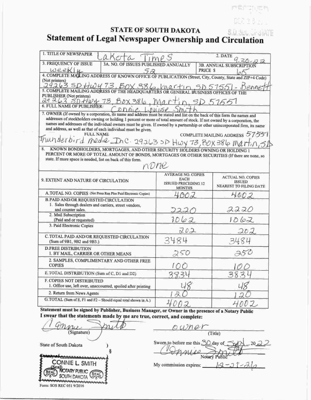 STATE OF SOUTH DAKOTA
Statement of Legal Newspaper Ownership and Circulation
1. TITLE OF NEWSPAPER Lakota Times
2. DATE
3. FREQUENCY OF ISSUE weekly
3A. NO. OF ISSUES PUBLISHED ANNUALLY 52
3B. ANNUAL SUBSCRIPTION PRICE $
4. COMPLETE MAILING ADDRESS OF KNOWN OFFICE OF PUBLICATION (Street, City, County, State and ZIP+4 Code) (Not printers)
29263 SD Hwy 73, Box 386, Martin, SD 57551 - Bennett
5. COMPLETE MAILING ADDRESS OF THE HEADQUARTERS OR GENERAL BUSINESS OFFICES OF THE PUBLISHER (Not printers)
29263 SD Hwy 73, Box 386, Martin, SD 57551
6. FULL NAME OF PUBLISHER: Connie Louise Smith
7. OWNER (If owned by a corporation, its name and address must be stated and
FULL NAME
COMPLETE MAILING ADDRESS 57551
Thunderbird Media Inc 29263 SD Hwy 73, Box 386 Martin, SD
8. KNOWN BONDHOLDERS, MORTGAGEES, AND OTHER SECURITY HOLDERS OWNING OR HOLDING 1 PERCENT OR MORE OF TOTAL AMOUNT OF BONDS, MORTGAGES OR OTHER SECURITIES (If there are none, so state. If more space is needed, list on back of this form.
NONE
9. EXTENT AND NATURE OF CIRCULATION
AVERAGE NO. COPIES EACH ISSUES PRECEDING 12 MONTHS
ACTUAL NO. COPIES ISSUED NEAREST TO FILING DATE
A. TOTAL NO. COPIES 4002 4002
B. PAID AND/OR REQUESTED CIRCULATION
1. Sales through dealers and carriers, street vendors, and counter sales. 2220 2220
2. Mail Subscription (Paid and/or requested) 1062 1062
3. Paid Electronic Copies 202 202
C. TOTAL PAID AND/OR REQUESTED CIRCULATION (Sum of 9B1, 9B2 and 9B3.) 3484 3484
D. FREE DISTRIBUTION
1. BY MAIL, CARRIER OR OTHER MEANS 250 250
2. SAMPLES, COMPLIMENTARY AND OTHER FREE COPIES 100 100
E. TOTAL DISTRIBUTION (Sum of C, D1 and D2) 3834 3834
F. COPIES NOT DISTRIBUTED
1. Office use, left over, unaccounted, spoiled after printing 48 48
2. Return from News Agents 120 120
G. TOTAL (Sum of E, F1 and F2 - Should equal total shown in A.) 4002 4002
Statement must be signed by Publisher, Business Manager, or Owner in the presence of a Notary Public
I swear that the statements made by me are true, correct, and complete:
Connie Smith owner
(Signature) (Title)
State of South Dakota )
Sworn to before me this 30 day of 2022
Connie Smith
Notary Public
My commission expires:
CONNIE L. SMITH
NOTARY PUBLIC
SOUTH DAKOTA